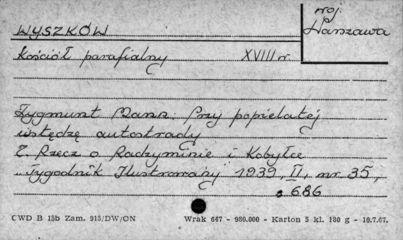 woj.
WYSZKÓW Warszawa
Kościół parafialny XVIII w.
Zygmunt Mann. Przy popielatej
wstędze autostrady
Z. Rzecz o Radzyminie i Kobyłce
Tygodnik Ilustrowany 1939, II, nr. 35,
s 686
CWD B 15b Zam. 915/DW/ON Wrak 647 - 980.000 - Karton 3 kl. 180 g - 10.7.67.